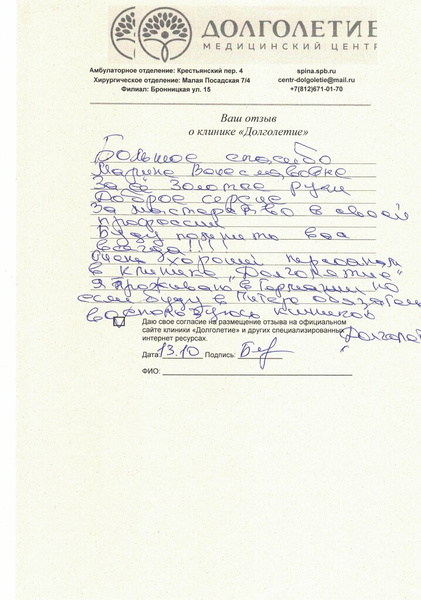 ДОЛГОЛЕТИЕ
МЕДИЦИНСКИЙ ЦЕНТР
Амбулаторное отделение: Крестьянский пер. 4
spina.spb.ru
Хирургическое отделение: Малая Посадская 7/4
centr-dolgoletie@mail.ru
Филиал: Бронницкая ул. 15
+7(812)671-01-70
Ваш отзыв
о клинике «Долголетие»
Большое спасибо
Марине Вячеславовне
За её Золотые руки
Доброе сердце
За мастерство в своей
професии
Буду помнить вас
всегда!
Очень хороший персонал
в клинике "Долголетие"
Я проживаю в Германии но
если буду в Питере обязательно
клиникой
Долголет
Даю свое согласие на размещение отзыва на официальном
сайте клиники «Долголетие» и других специализированных
интернет ресурсах.
Дата: 13.10 Подпись:
ФИО: